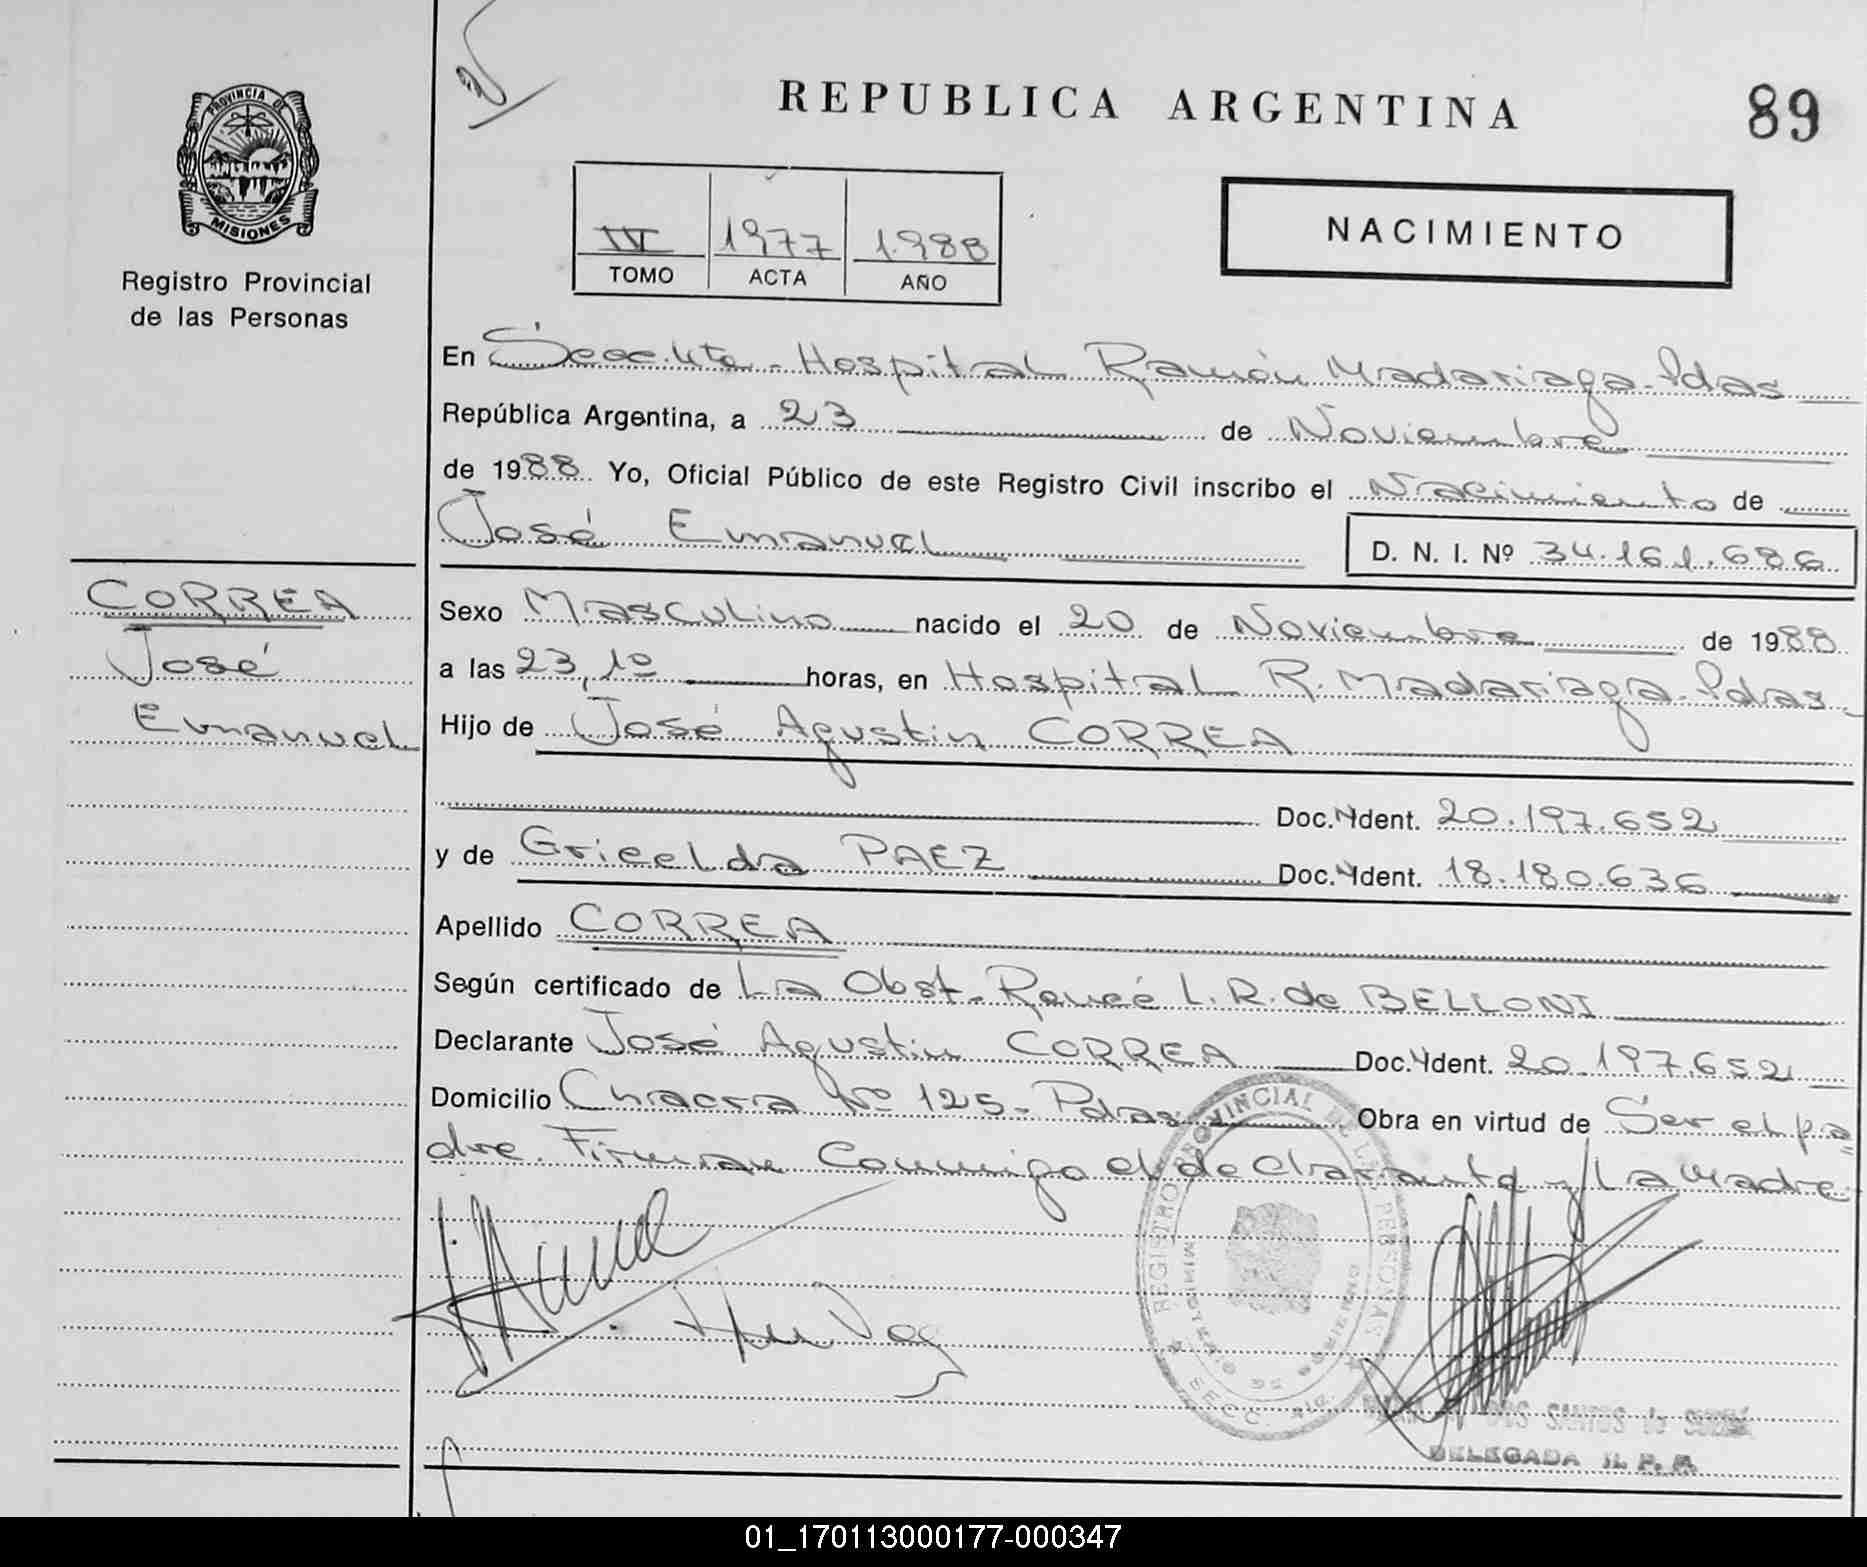 REPUBLICA ARGENTINA
89
PROVINCIA DE
MISIONES
Registro Provincial
de las Personas
IV 1977 1.988
TOMO ACTA AÑO
NACIMIENTO
En Secc. 4ta - Hospital Ramón Madariaga - Pdas
República Argentina, a 23 de Noviembre
de 1988 Yo, Oficial Público de este Registro Civil inscribo el Nacimiento de
José Emanuel
D. N. I. Nº 34.161.686
CORREA
José
Emanuel
Sexo Masculino nacido el 20 de Noviembre de 1988
a las 23,10 horas, en Hospital R. Madariaga - Pdas
Hijo de José Agustin CORREA
Doc. Ident. 20.197.652
y de Gricelda PAEZ Doc. Ident. 18.180.636
Apellido CORREA
Según certificado de La Obst. Reneé L. R. de BELLONI
Declarante José Agustin CORREA Doc. Ident. 20.197.652
Domicilio Chacra Nº 125 - Pdas Obra en virtud de Ser el pa
dre. Firman Conmigo el declarante y la Madre
REGISTRO PROVINCIAL DE LAS PERSONAS
MINISTERIO DE GOBIERNO
SECC.
DOS SANTOS de
DELEGADA R. P. P.
01_170113000177-000347